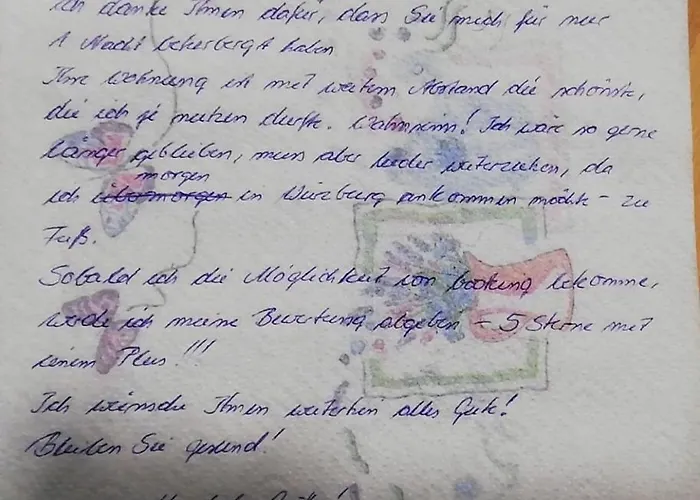 ich danke Ihnen dafür, dass Sie mich für nur
1 Nacht beherbergt haben
Ihre Wohnung ist mit weitem Abstand die schönste,
die ich je nutzen durfte. Wahnsinn! Ich wäre so gerne
länger geblieben, muss aber leider weiterziehen, da
morgen
ich übermorgen in Würzburg ankommen möchte - zu
Fuß.
Sobald ich die Möglichkeit von booking bekomme,
werde ich meine Bewertung abgeben - 5 Sterne mit
einem Plus!!!
Ich wünsche Ihnen weiterhin alles Gute!
Bleiben Sie gesund!